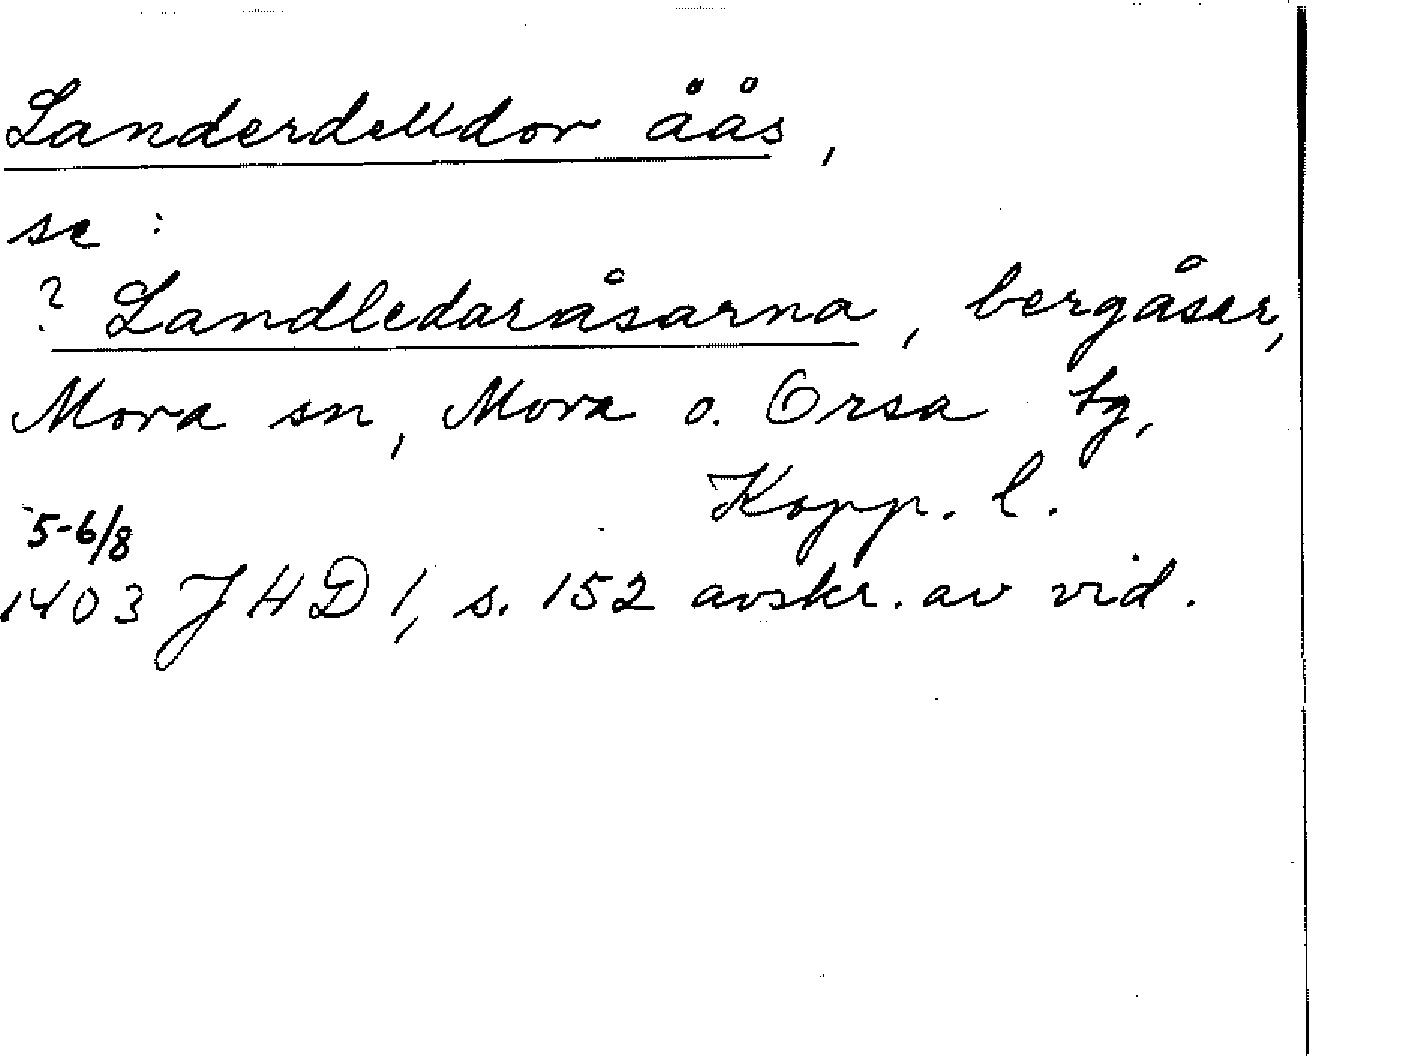 Landerdelldor åås,
se :
? Landledaråsarna, bergåsar,
Mora sn, Mora o. Orsa tg,
Kopp. l.
5-6/8
1403 JHD 1, s. 152 avskr. av vid.